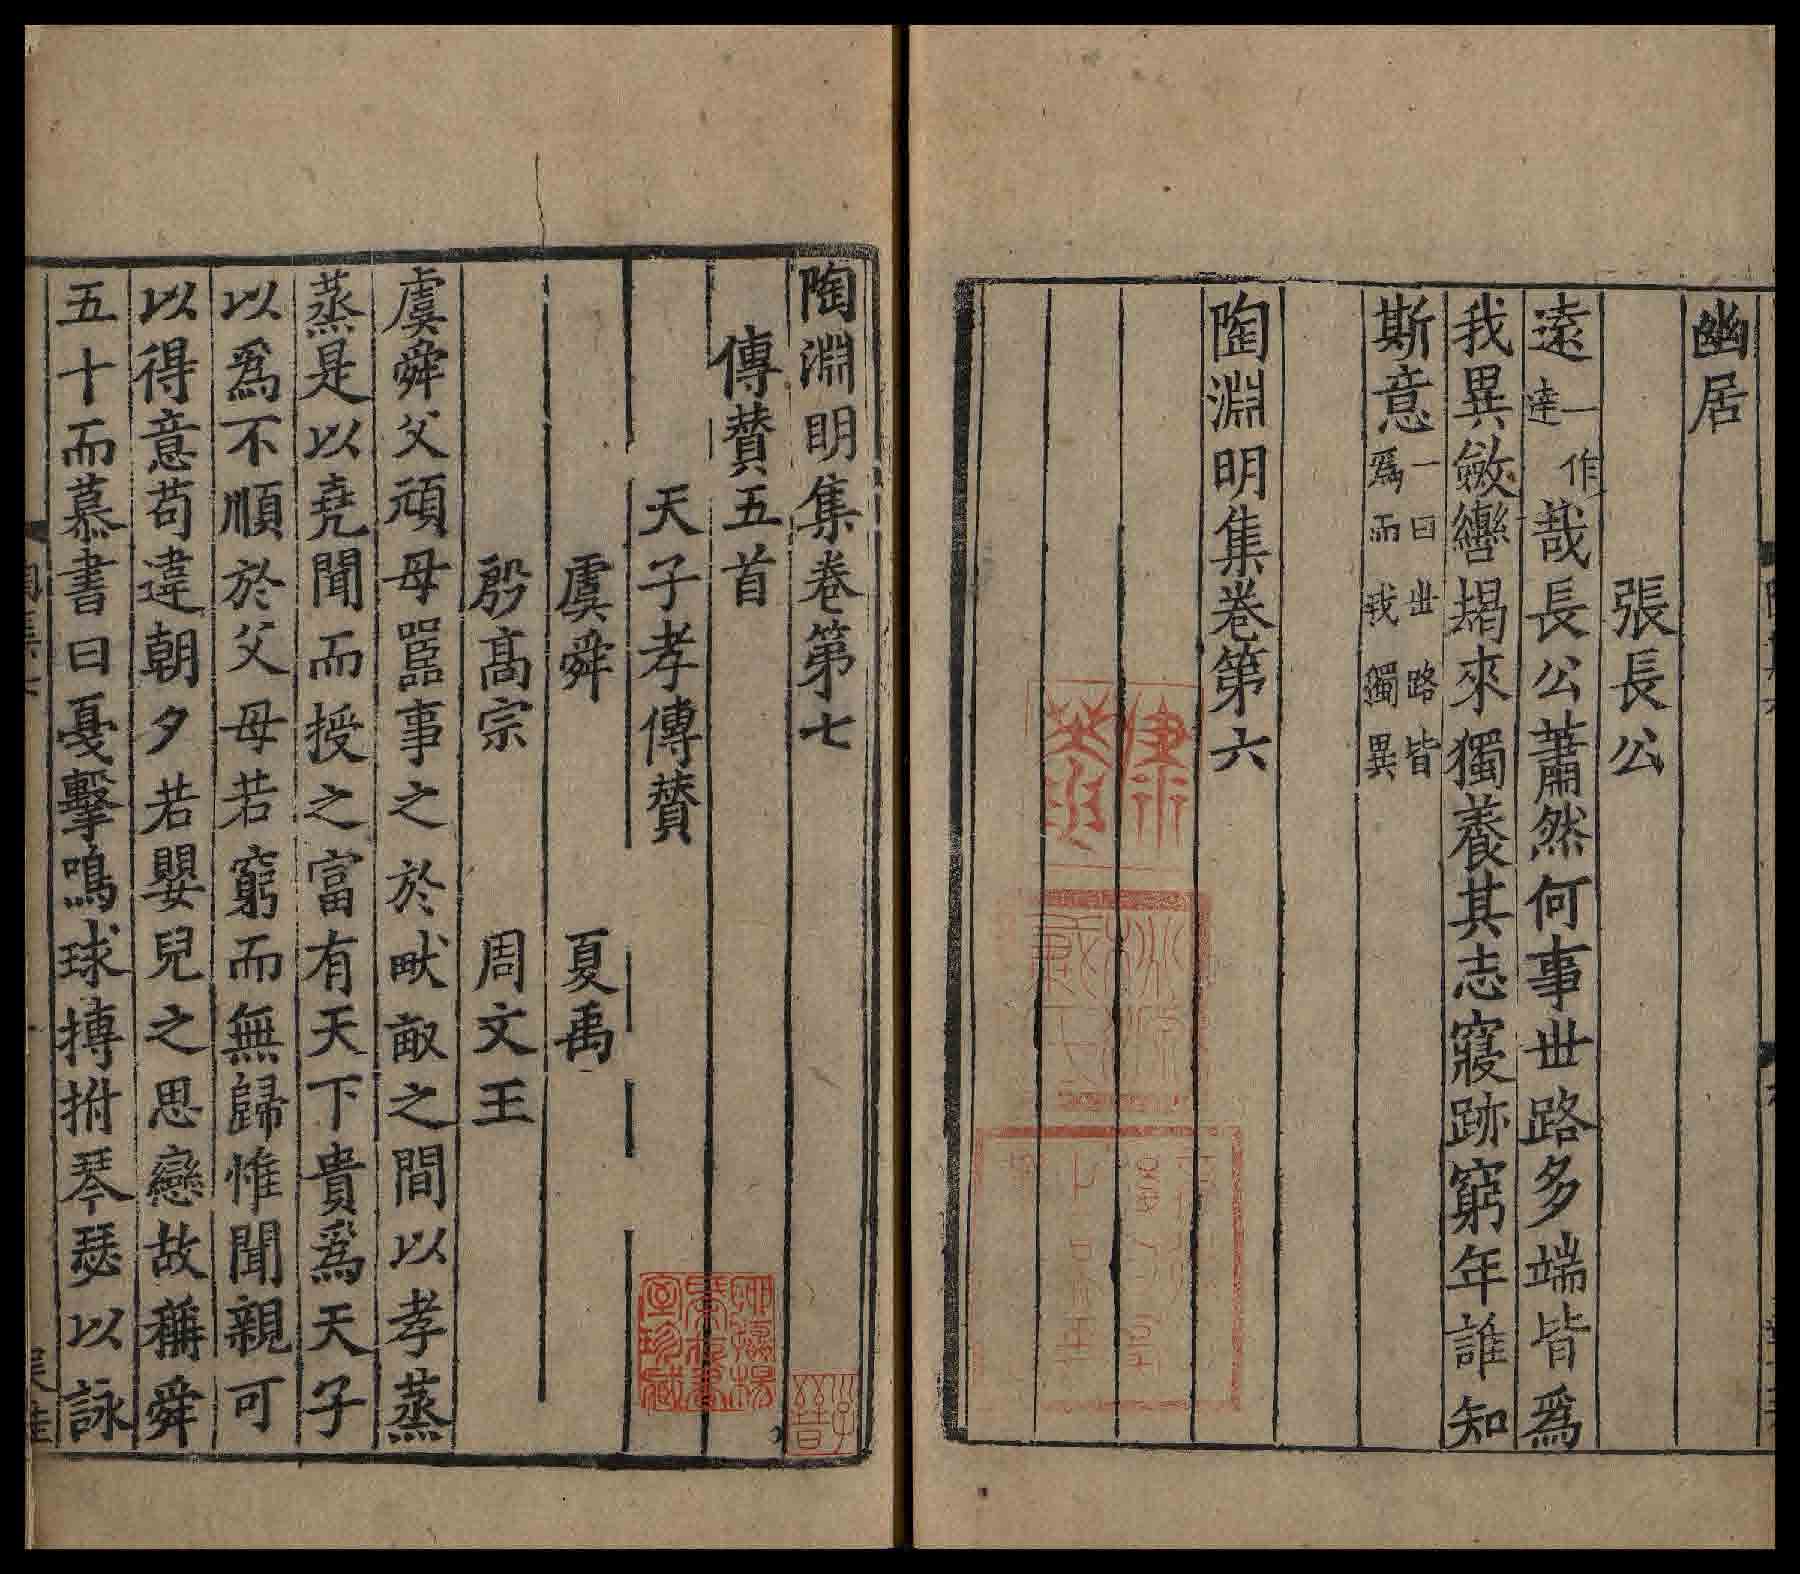 幽居
張長公
遠一作達哉長公蕭然何事世路多端皆爲
我異斂轡朅來獨養其志寢跡窮年誰知
斯意一曰世路皆爲而我獨異
陶淵明集卷第六
陶淵明集卷第七
傳贊五首
天子孝傳贊
虞舜 夏禹
殷高宗 周文王
虞舜父頑母嚚事之於畎畝之間以孝蒸
蒸是以堯聞而授之富有天下貴爲天子
以爲不順於父母若窮而無歸惟聞親可
以得意苟違朝夕若嬰兒之思戀故稱舜
五十而慕書曰戛擊鳴球搏拊琴瑟以詠